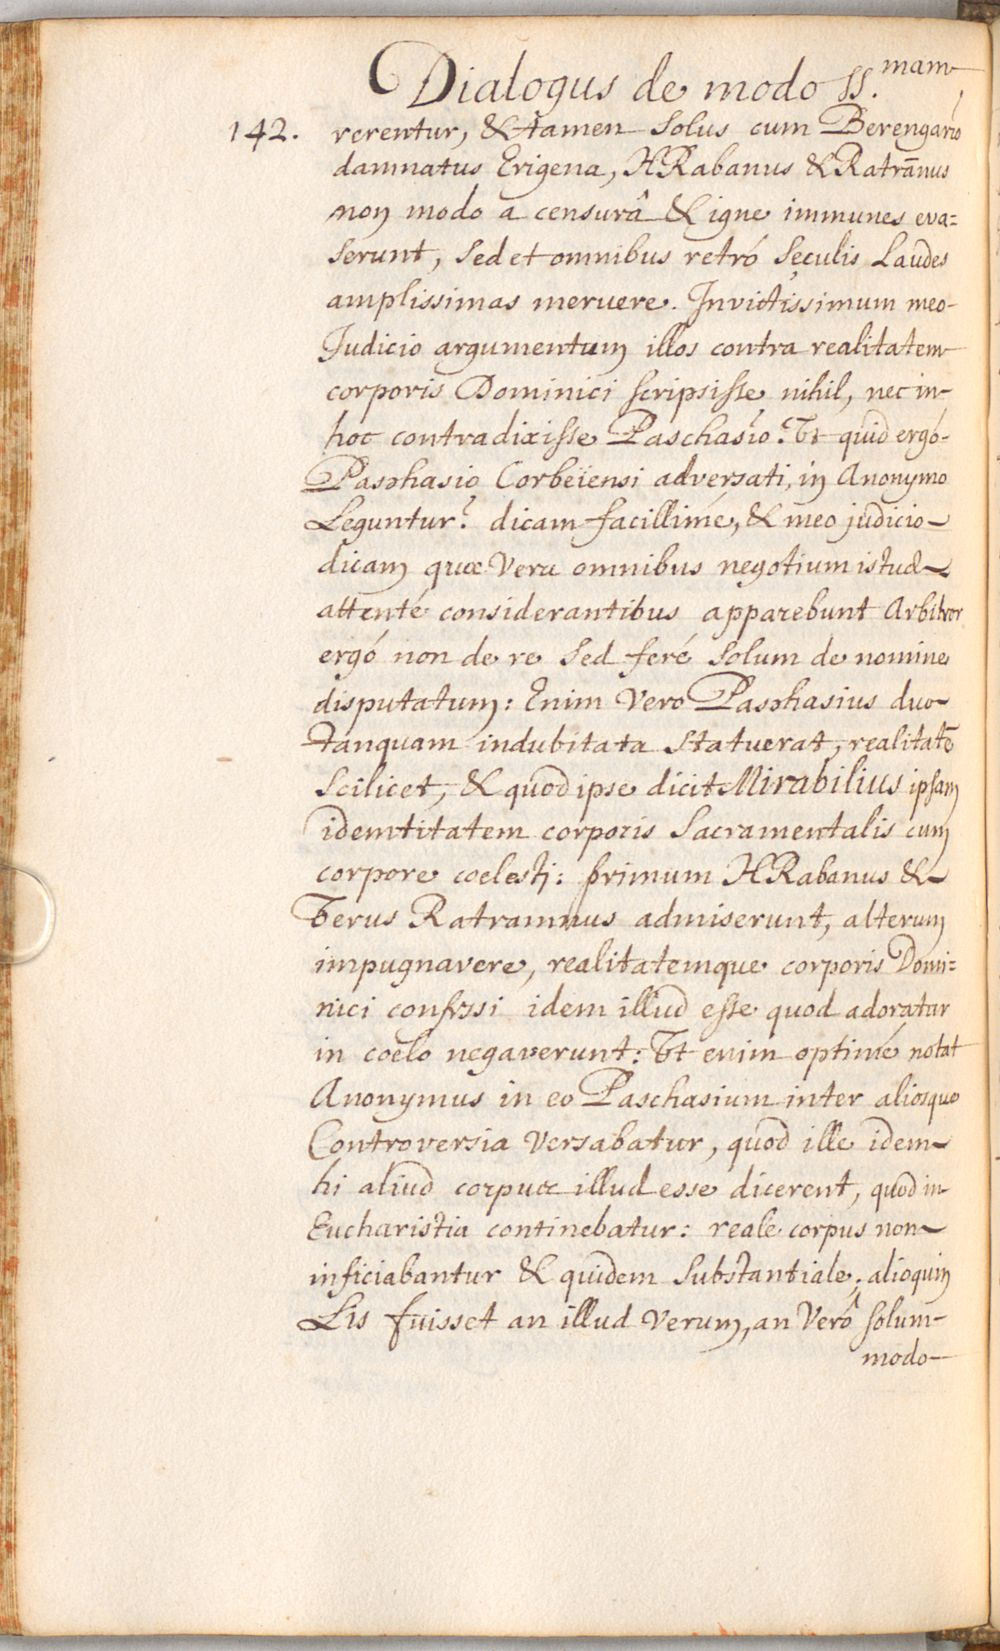 Dialogus de modo SS.mam
142. rerentur, & tamen solus cum Berengario
damnatus Erigena, HRabanus & Ratrānus
non modo a censurâ & igne immunes eva=
serunt, sed et omnibus retró seculis Laudes
amplissimas meruere. Invictissimum meo-
Iudicio argumentum illos contra realitatem
corporis Dominici scripsisse nihil, nec in-
hoc contradixisse Paschasio. Vt quid ergó-
Paschasio Corbeïensi adversati, in Anonymo
Leguntur? dicam facillimé, & meo judicio-
dicam quæ Vera omnibus negotium istud-
attenté considerantibus apparebunt Arbitror
ergó non de re sed feré solum de nomine
disputatum: Enim Vero Paschasius duo-
tanquam indubitata statuerat, realitatē
scilicet, & quod ipse dicit Mirabilius ipsam
idemtitatem corporis Sacramentalis cum
corpore coelesti: primum HRabanus &-
Verus Ratramnus admiserunt, alterum
impugnavere, realitatemque corporis Domi=
nici confessi idem illud esse quod adoratur
in coelo negaverunt: Vt enim optimé notat
Anonymus in eo Paschasium inter aliosque
Controversia Versabatur, quod ille idem-
hi aliud corpus illud esse dicerent, quod in-
Eucharistia continebatur: reale corpus non-
inficiabantur & quidem substantiale; alioquin
Lis fuisset an illud Verum, an Verô solum-
modo-